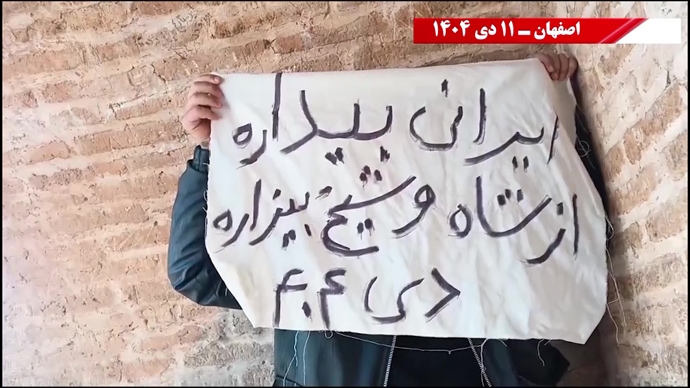 اصفهان ــ ۱۱ دی ۱۴۰۴
ایرانی بیداره
از شاه و شیخ بیزاره
دی ۴۰۴